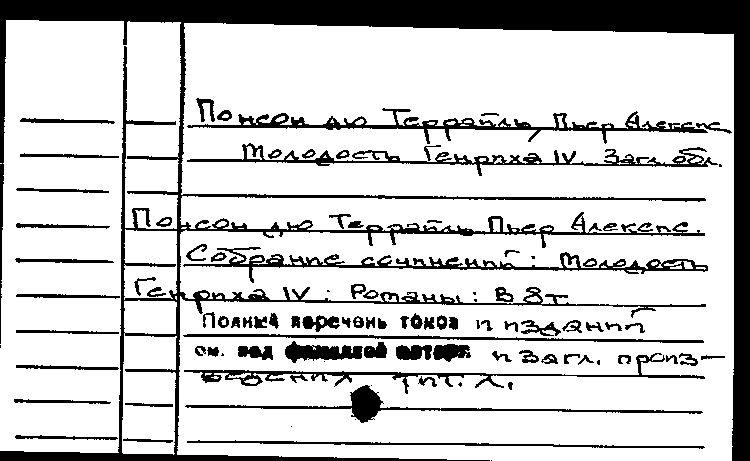 Понсон дю Террайль, Пьер Алексис
Молодость Генриха IV. Загл. обл.
Понсон дю Террайль Пьер Алексис.
Собрание сочинений: Молодость
Генриха IV: Романы: В 8т
Полный перечень томов и изданий
см. под фамилией автора и загл. произ-
ведения тит. л.